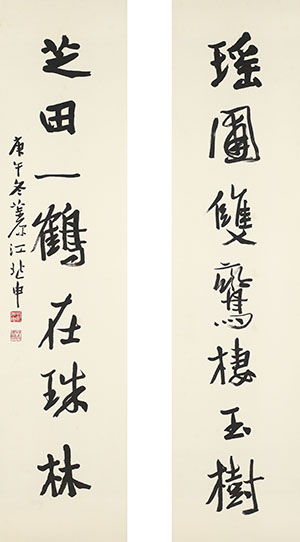 瑤圃雙鸞棲玉樹
芝田一鶴在珠林
庚午冬暮江兆申